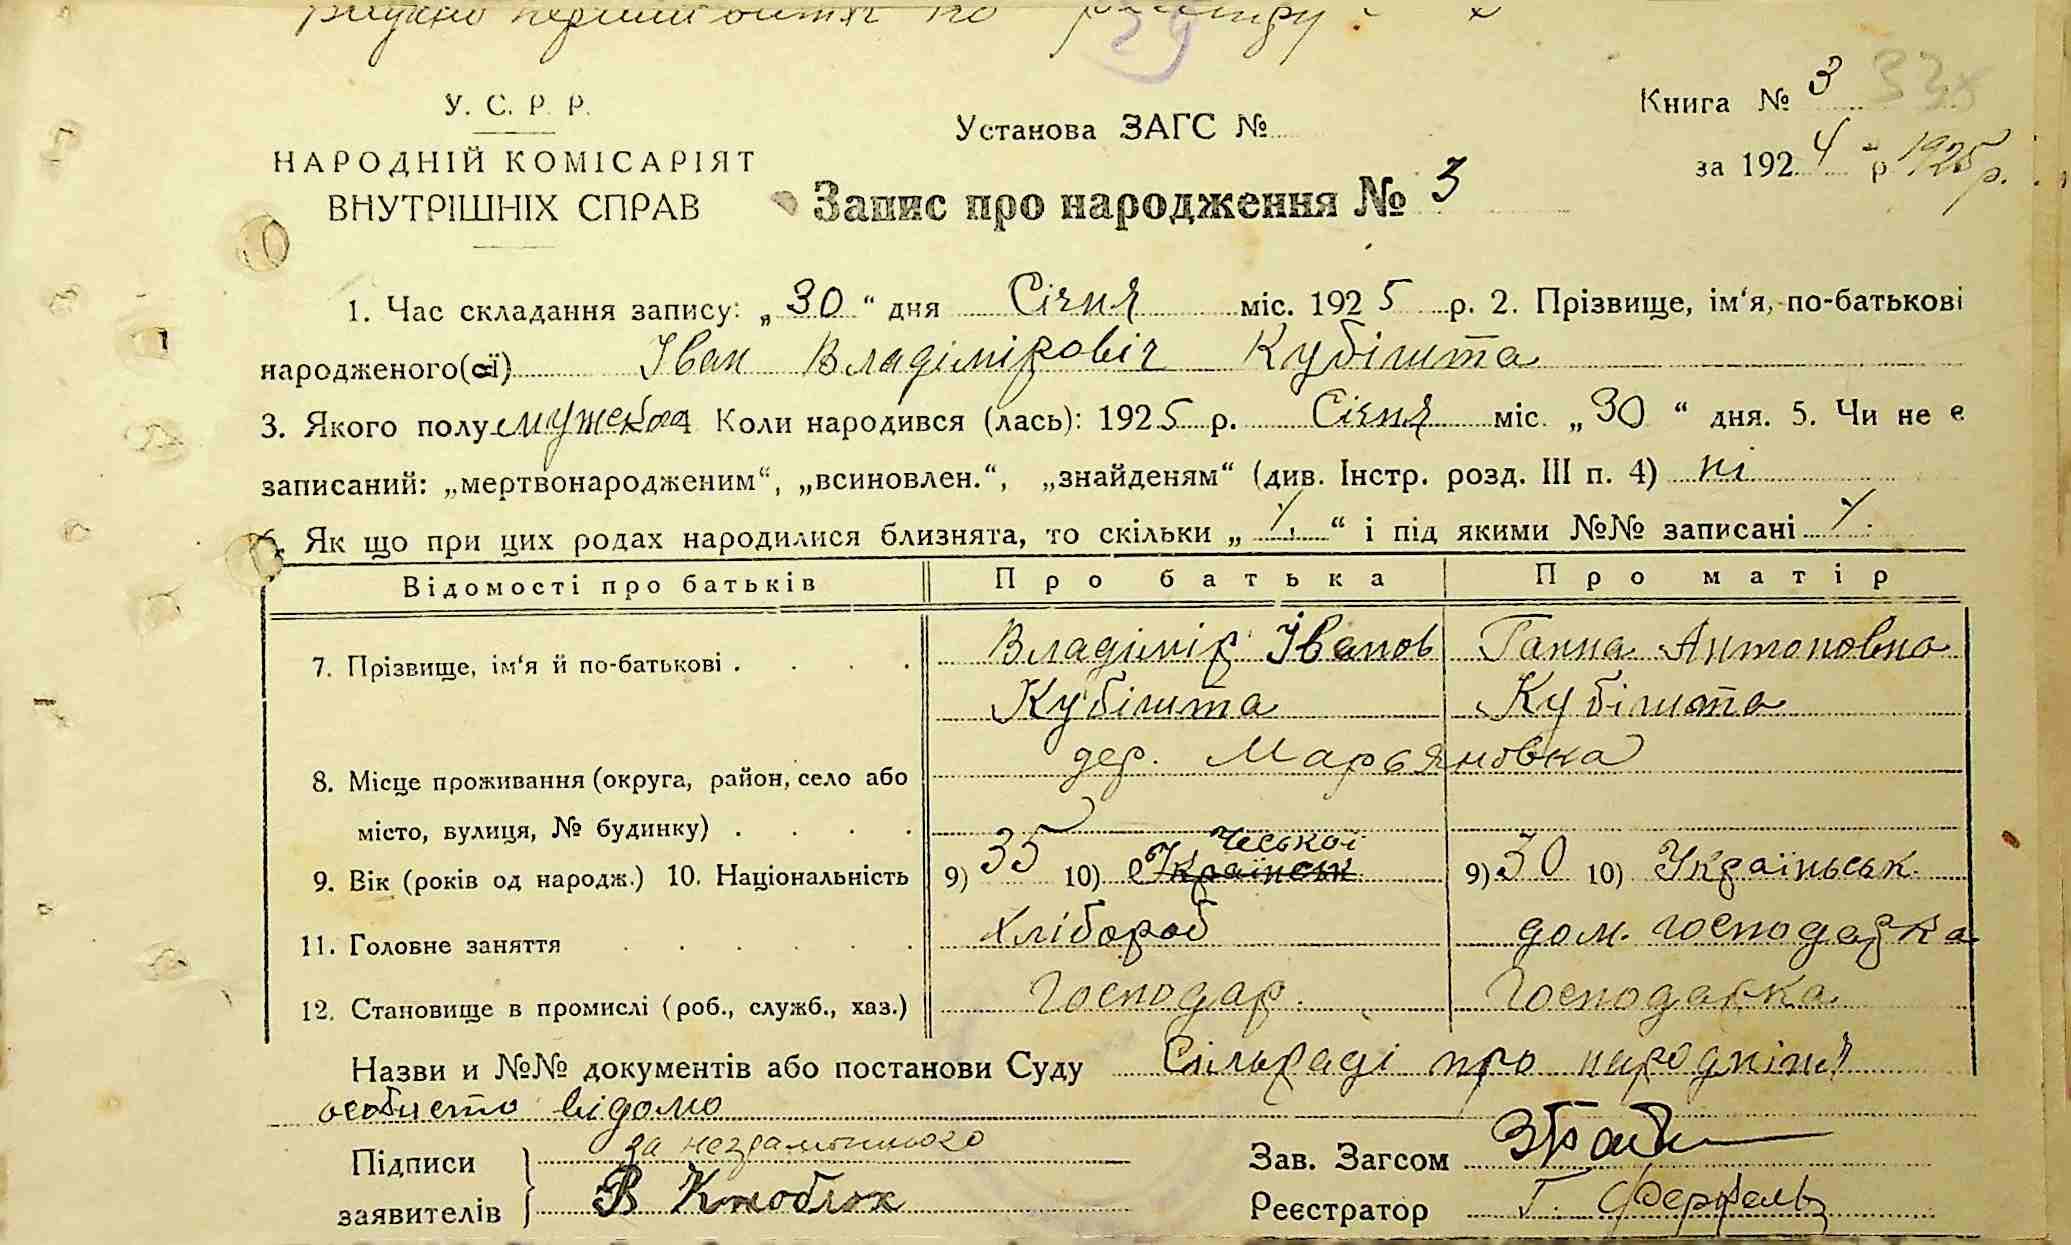 29
У. С. Р. Р.
НАРОДНІЙ КОМІСАРІЯТ
ВНУТРІШНІХ СПРАВ
Установа ЗАГС №
Книга № 3
за 192 4 р 1925 р.
Запис про народження № 3
1. Час складання запису: „ 30 “ дня Січня міс. 192 5 р. 2. Прізвище, ім‘я, по-батькові
народженого(ої) Іван Владіміровіч Кубішта
3. Якого полу мужской Коли народився (лась): 192 5 р. Січня міс. „ 30 “ дня. 5. Чи не є
записаний: „мертвонародженим“, „всиновлен.“, „знайденям“ (див. Інстр. розд. III п. 4) ні
6. Як що при цих родах народилися близнята, то скільки „ “ і під якими №№ записані
Відомості про батьків Про батька Про матір
7. Прізвище, ім‘я й по-батькові . Владімір Іванов Ганна Антоновна
Кубішта Кубішта
8. Місце проживання (округа, район, село або дер. Марьяновка
місто, вулиця, № будинку) .
Чеської
9. Вік (років од народж.) 10. Національність 9) 35 10) Українськ 9) 30 10) Україньськ.
11. Головне заняття Хлібороб дом. господарка
12. Становище в промислі (роб., служб., хаз.) Господар. Господарка
Назви и №№ документів або постанови Суду Сільраді про народніня
особисто відомо
Підписи за незрамотного Зав. Загсом
заявителів В Кноблох Реєстратор Г.